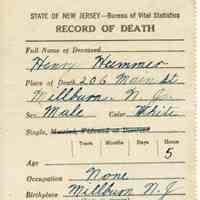 STATE OF NEW JERSEY—Bureau of Vital Statistics
RECORD OF DEATH
Full Name of Deceased
Henry Hummer
Place of Death 206 Main St
Millburn N. J.
Sex Male Color White
Single, Married, Widowed or Divorced
Years Months Days Hours
5
Age
Occupation None
Birthplace Millburn N. J